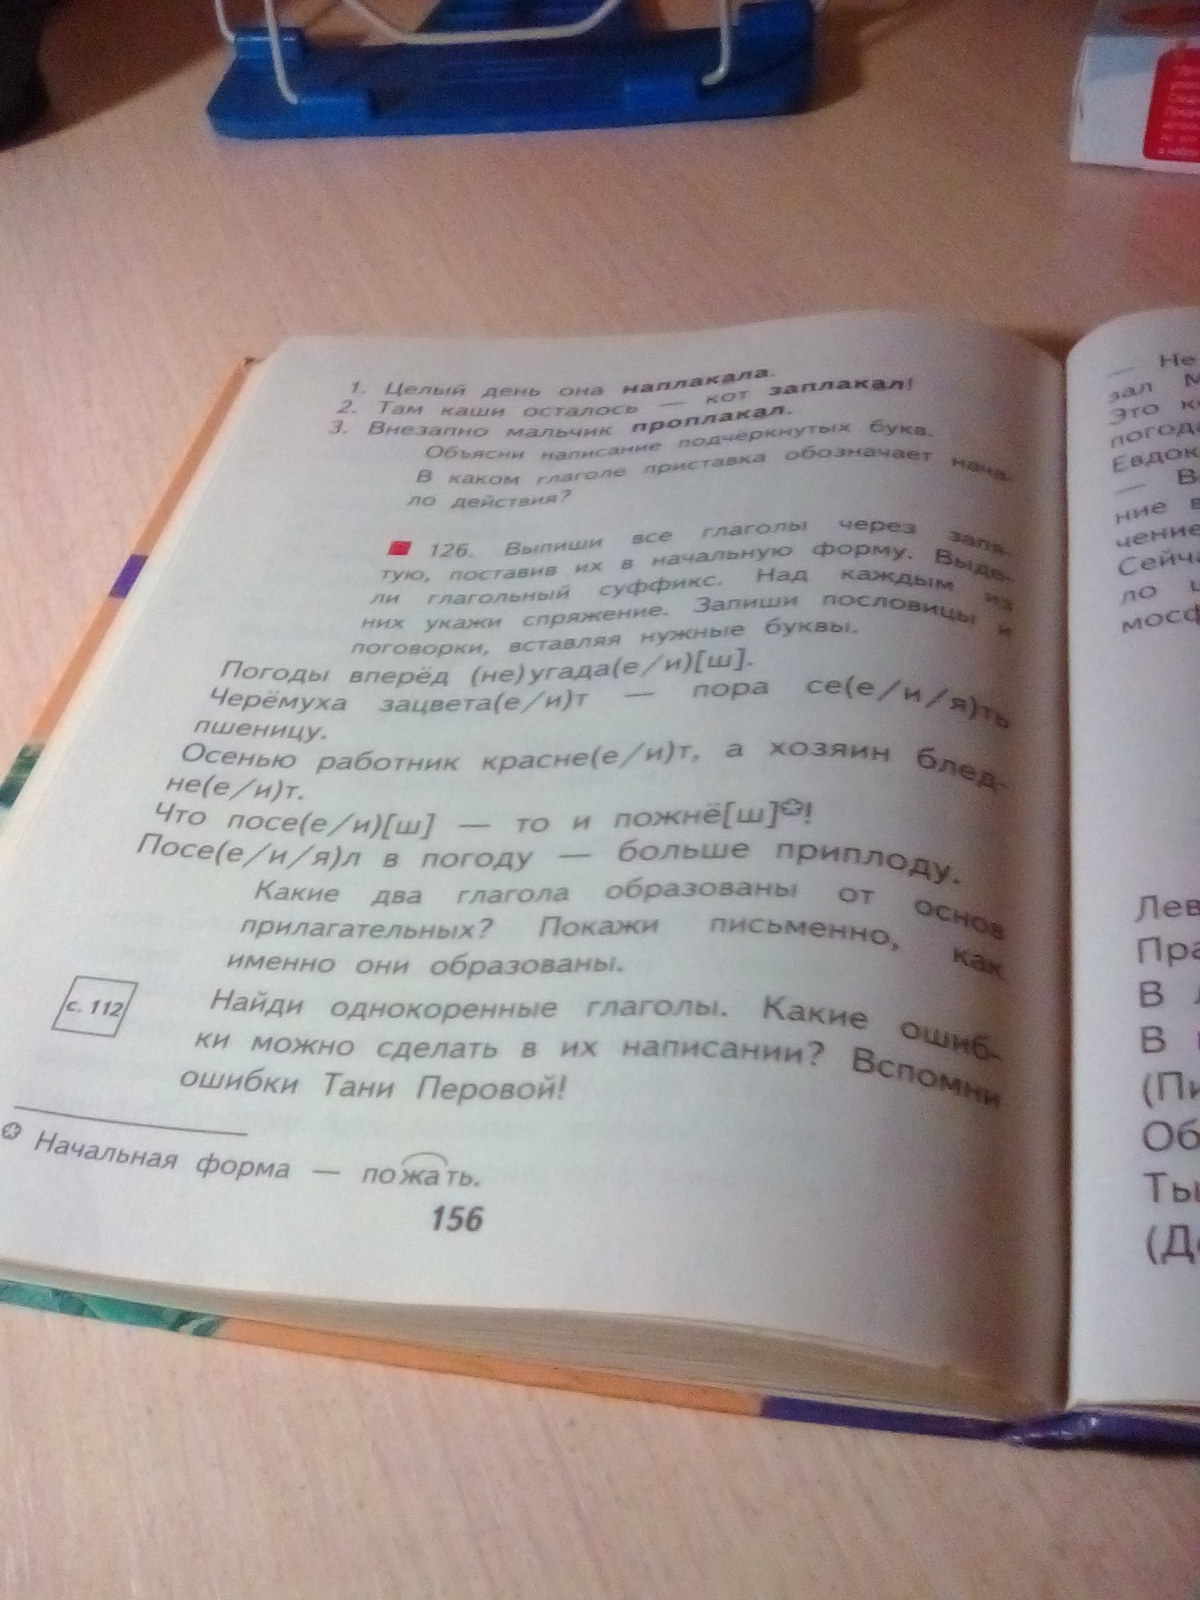 1. Целый день она наплакала.
2. Там каши осталось — кот заплакал!
3. Внезапно мальчик проплакал.
Объясни написание подчёркнутых букв.
В каком глаголе приставка обозначает нача-
ло действия?
126. Выпиши все глаголы через запя-
тую, поставив их в начальную форму. Выде-
ли глагольный суффикс. Над каждым из
них укажи спряжение. Запиши пословицы и
поговорки, вставляя нужные буквы.
Погоды вперёд (не)угада(е/и)[ш].
Черёмуха зацвета(е/и)т — пора се(е/и/я)ть
пшеницу.
Осенью работник красне(е/и)т, а хозяин блед-
не(е/и)т.
Что посе(е/и)[ш] — то и пожнё[ш]!
Посе(е/и/я)л в погоду — больше приплоду.
Какие два глагола образованы от основ
прилагательных? Покажи письменно, как
именно они образованы.
с. 112
Найди однокоренные глаголы. Какие ошиб-
ки можно сделать в их написании? Вспомни
ошибки Тани Перовой!
Начальная форма — пожать.
156
— Не
зал М
Это к
погода
Евдок
— В
ние в
чение
Сейча
ло ц
мосф
Лев
Пра
В
В
(Пи
Об
Ты
(Д